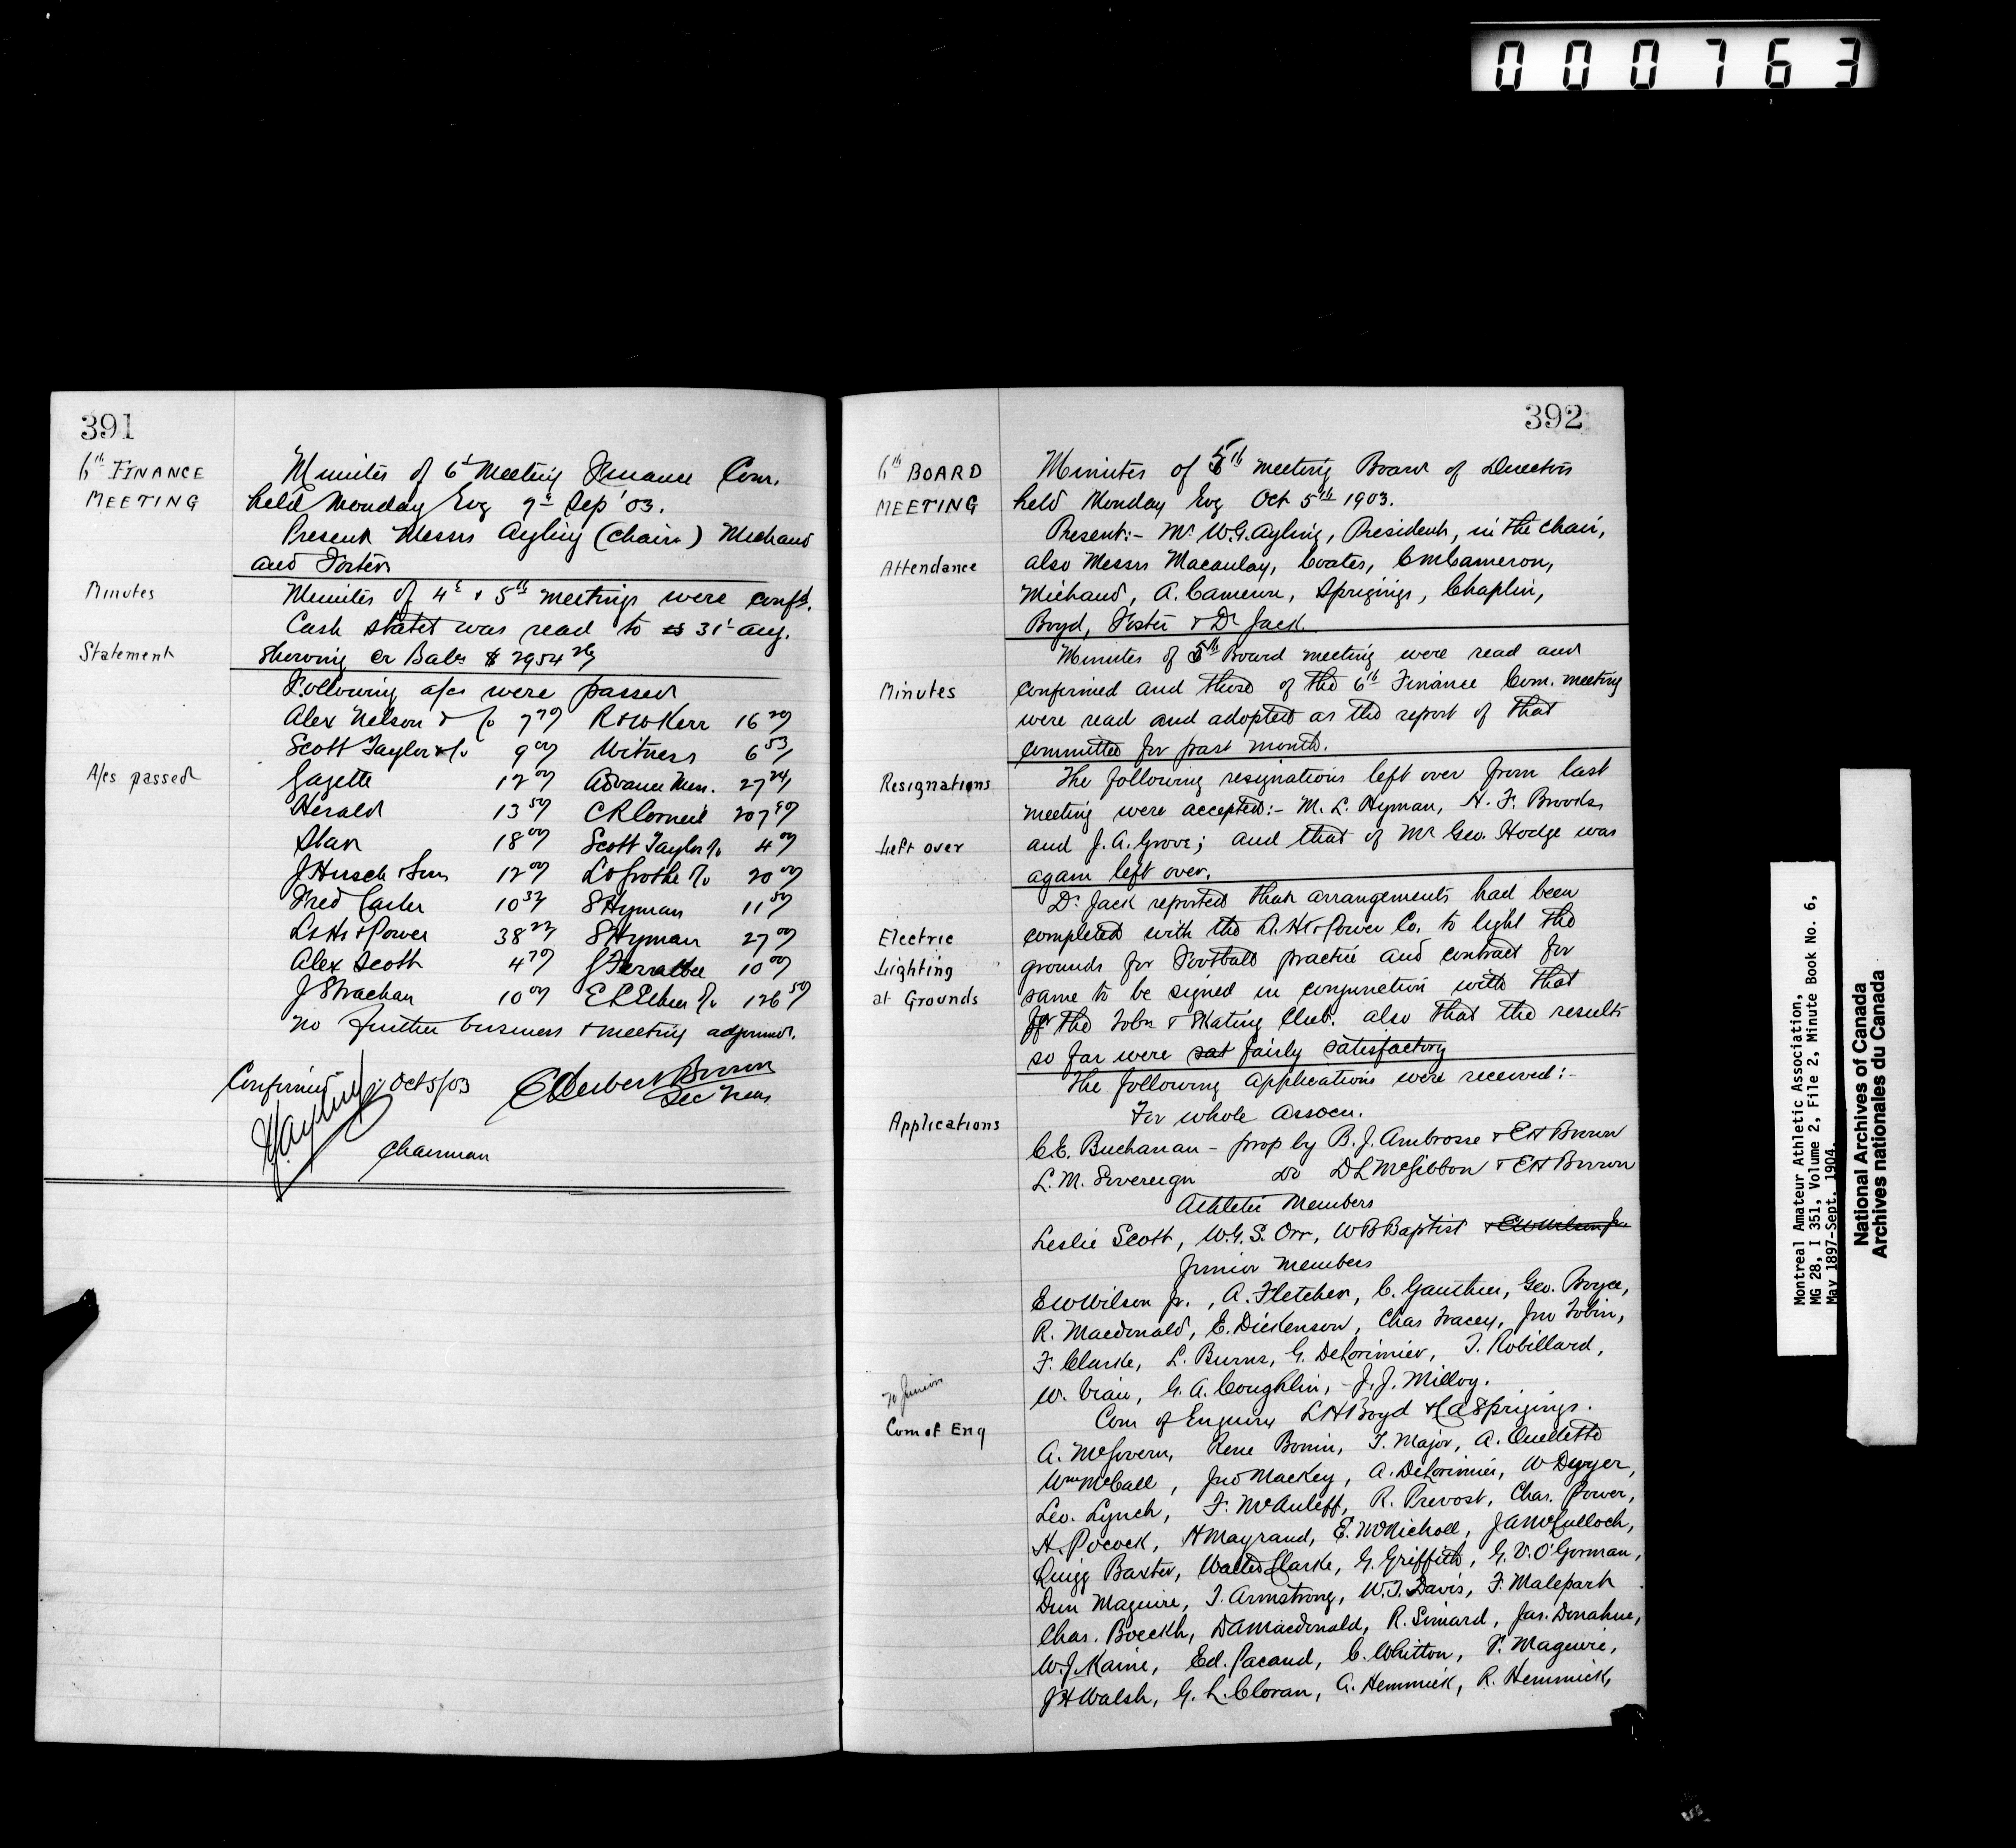 000763
391
6th FINANCE
MEETING
Minutes of 6t Meeting Finance Com.
held Monday Evg Sep '03.
Present Messrs Ayling (Chairn) Michaud
and Foster
Minutes
Minutes of 4t & 5th meetings were confd.
Cash statet was read to 31t Aug.
Statement
Showing Cr Balce $ 2954
Following a/cs were passed
Alex Nelson & Co R & W Kerr 16
Scott Taylor & Co 9 00/ Witness 6 53/
A/cs passed
Gazette 12 00/ Advance Men. 27 24/
Herald 13 50/ C R Corneil 207
Star 18 00/ Scott Taylor Co 4
J Hirsch & Sons 12 00/ L O Grothe Co 20 00/
Fred Carter 10 S Hyman 11 50/
L H & Power 38 S Hyman 27 00/
Alex Scott 4 10 00/
J Strachan 10 00/ Co 126 50/
No further business & meeting adjourned.
Confirmed Oct 5/03 E Herbert Brown
Sec Treas
W G Ayling
Chairman
392
6th BOARD
MEETING
Minutes of 5th meeting Board of Directors
held Monday Evg Oct 5th 1903.
Present:- Mr W. G. Ayling, President, in the chair,
Attendance
also Messrs Macaulay, Coates, C M Cameron,
Michaud, A. Cameron, Sprigings, Chaplin,
Boyd, Foster & Dr Jack.
Minutes of 5th Board meeting were read and
Minutes
confirmed and those of the 6th Finance Com. meeting
were read and adopted as the report of that
committee for past month.
Resignations
The following resignations left over from last
meeting were accepted:- M. L. Hyman, H. F. Brooks
Left over
and J. A. Grove; and that of Mr Geo. Hodge was
again left over.
Dr. Jack reported that arrangements had been
Electric
completed with the L. H & Power Co. to light the
Lighting
grounds for Football practice and contract for
at Grounds
same to be signed in conjunction with that
for the Tobn & Skating Club. also that the results
so far were sat fairly satisfactory
The following applications were received:-
Applications
For whole Assocn.
C. E. Buchanan - prop by B. J. Ambrosse & E H Brown
L. M. Sovereign do D L McGibbon & E H Brown
Athletic Members
Leslie Scott, W. G. S. Orr, W B Baptist & E W Wilson Jr
Junior Members
E W Wilson jr., A. Fletcher, C. Gauthier, Geo. Boyce,
R. Macdonald, E. Dickenson, Chas Tracey, Jno Tobin,
F. Clarke, L. Burns, G. DeLorimier, T. Robillard,
W. Viau, G. A. Coughlin, J. J. Milloy.
no junior
Com of Enq
Com of Enquiry L H Boyd & C A Sprigings.
A. McGovern, Rene Bonin, T. Major, A. Ouellette
Wm McCall, Jno Mackey, A. DeLorimier, W Dwyer,
Leo. Lynch, F. McAuleff, R. Prevost, Chas. Power,
H. Pocock, H Mayrand, E. McNicholl, J A McCulloch,
Quigg Baxter, Walter Clarke, G. Griffith, G. V. O'Gorman,
Dun Maguire, T. Armstrong, W. T. Davis, F. Malepart
Chas. Boeckh, D A Macdonald, R. Simard, Jas. Donahue,
W. J. Kaine, Ed. Pacaud, C. Whitton, P. Maguire,
J H Walsh, G. L. Cloran, A. Hemmick, R. Hemmick,
Montreal Amateur Athletic Association,
MG 28, I 351, Volume 2, File 2, Minute Book No. 6,
May 1897-Sept. 1904.
National Archives of Canada
Archives nationales du Canada